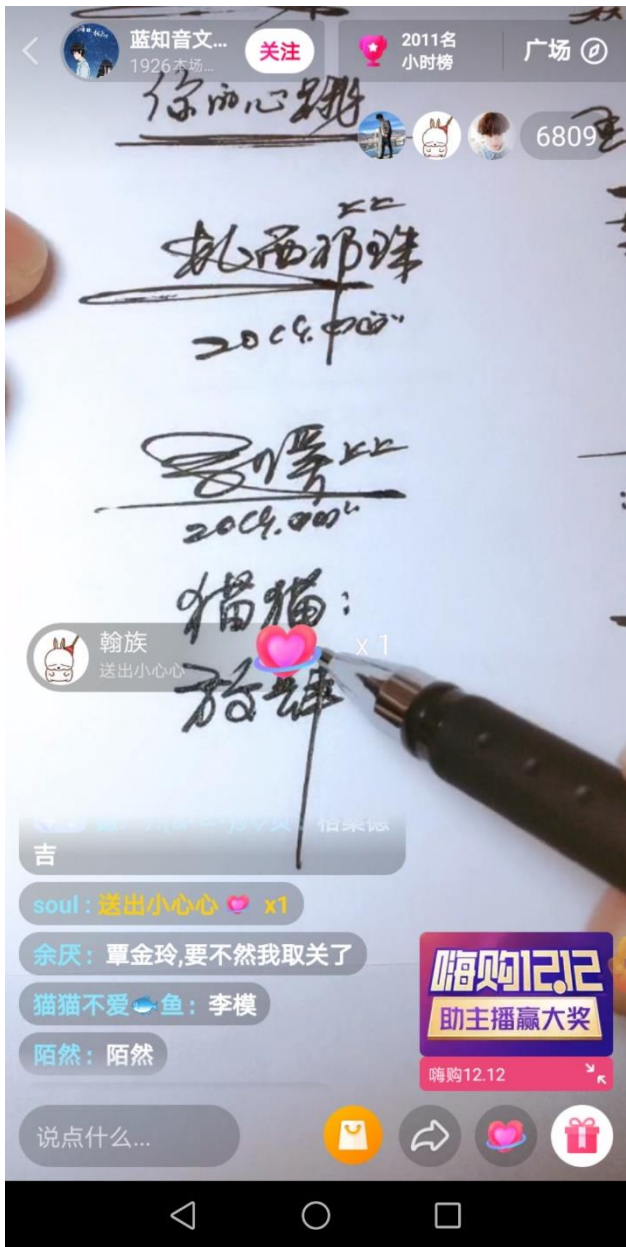 蓝知音文...
1926本场...
关注
2011名
小时榜
广场
你的心跳
6809
扎西邓珠
猫猫:
翰族
送出小心心
x 1
放肆
格桑德
吉
soul : 送出小心心 x1
余厌 : 覃金玲,要不然我取关了
猫猫不爱🐟鱼 : 李模
陌然 : 陌然
嗨购12.12
助主播赢大奖
嗨购12.12
说点什么...